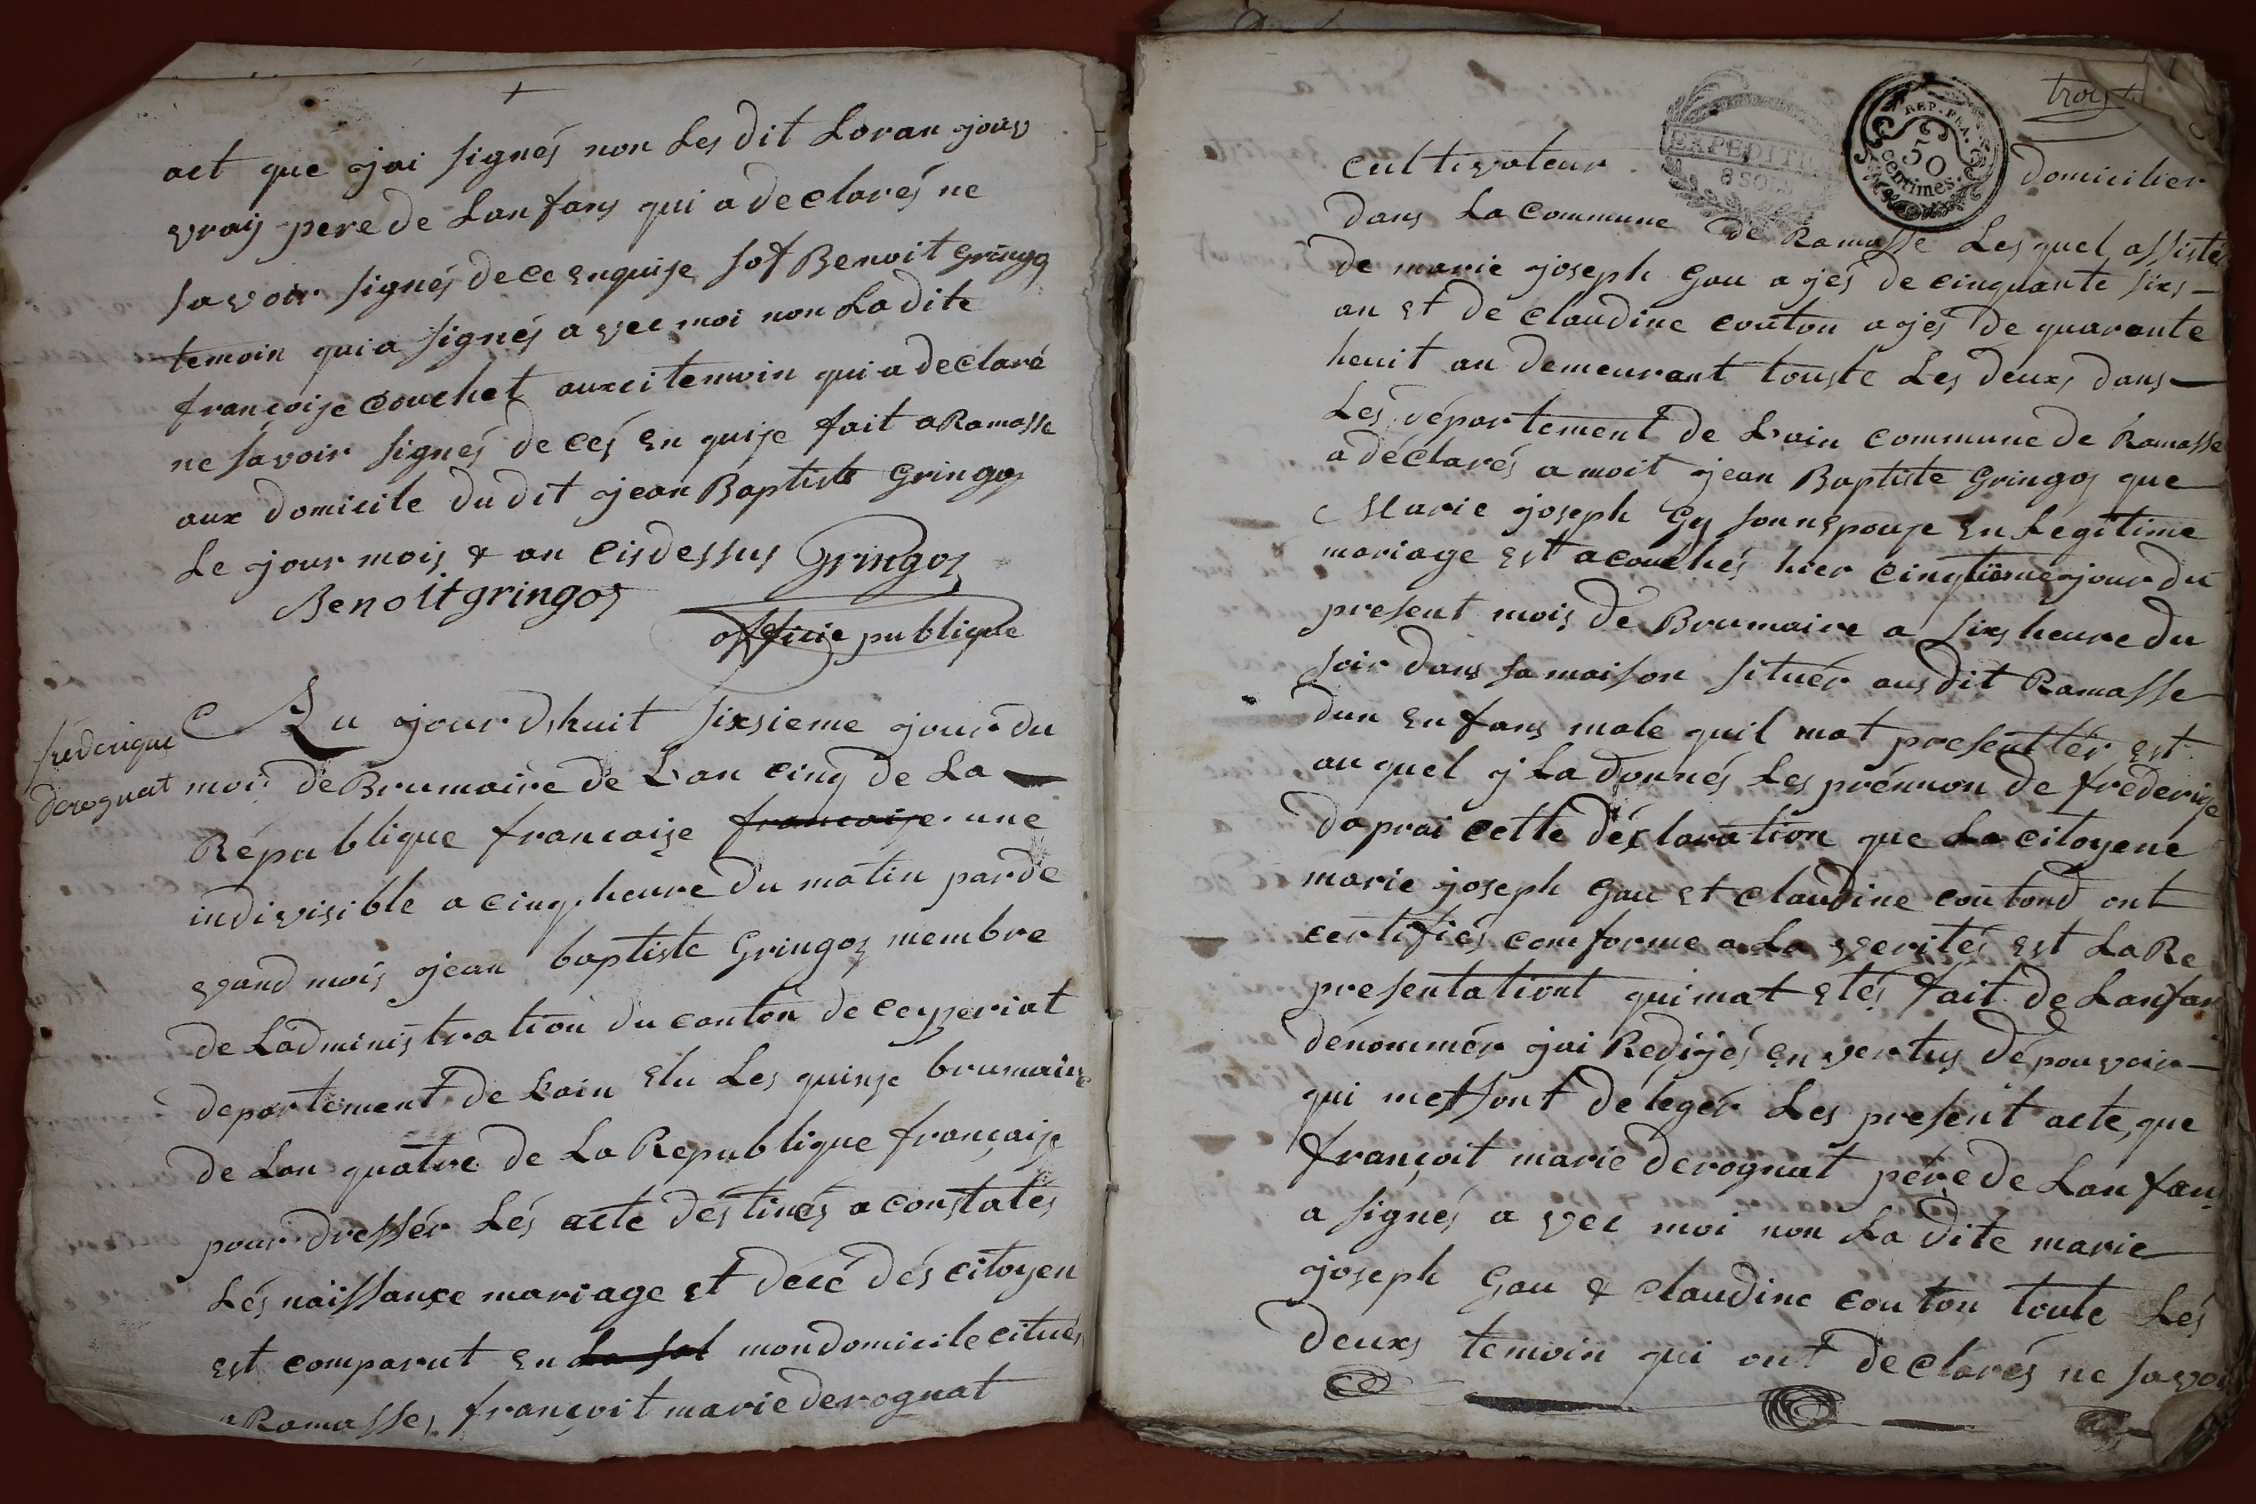 act que jai signés non Les dit Loran jouv
vray pere de Lanfans qui a declarés ne
savoir signés de ce enquise sof Benoit Gringoz
temoin qui a signés avec moi non La dite
françoise couchet auxci temoin qui a declaré
ne savoir signés de ces en quise fait a Ramasse
aux domicile du dit jean Baptiste Gringoz
Le jour mois & an cisdessus Gringoz
Benoitgringoz
officie publique
fréderique
derognat
Au jourdshuit sixsieme jour du
mois de Brumaire de Lan cinq de La
République francaise francaise une
indivisible a cinq heure du matin parde
vand mois jean baptiste Gringoz membre
de Ladministration du canton de ceyzeriat
departement de Lain Elu Les quinze brumaire
de Lan quatre de La Republique française
pour dressér Lés acte déstinés a constatés
Lés naissançe mariage et décé dés citoyen
est comparut en La sal mon domicile citués
a Ramasses françoit marie derognat
trois
EXPEDITION
8 SOLS
REP. FRA.
50
centimes.
cultivateur domicilier
dans La commune de Ramasse Lesquel assistés
de marie joseph Gau ajés de cinquante sixs
an et de claudine couton ajés de quarante
heuit an demeurant touste Les deux dans
Les département de Lain commune de Ramasse
a déclarés a moit jean Baptiste Gringoz que
Marie joseph Gy sonnepouse en Légitime
mariage est acouchés hier cinqtiéme jour du
present mois de Brumaire a sixs heure du
soir dans sa maison situér ausdit Ramasse
dun enfans male quil mat presentér est
auquel jLa donnés Les prénnon de fréderique
daprai cette déclaration que La citoyene
marie joseph Gau et claudine coutond ont
certifiés comforme a La verités est La Re
presentationt qui mat etés fait de Lanfan
dénommér jai Redijés en vertus dé pouvoir
qui metsont délegér Les present acte, que
françoit marie derognat pére de Lanfans
a signés a vec moi non La dite marie
joseph Gau & claudine couton toute Lés
deuxs temoin qui ont declarés ne savoir